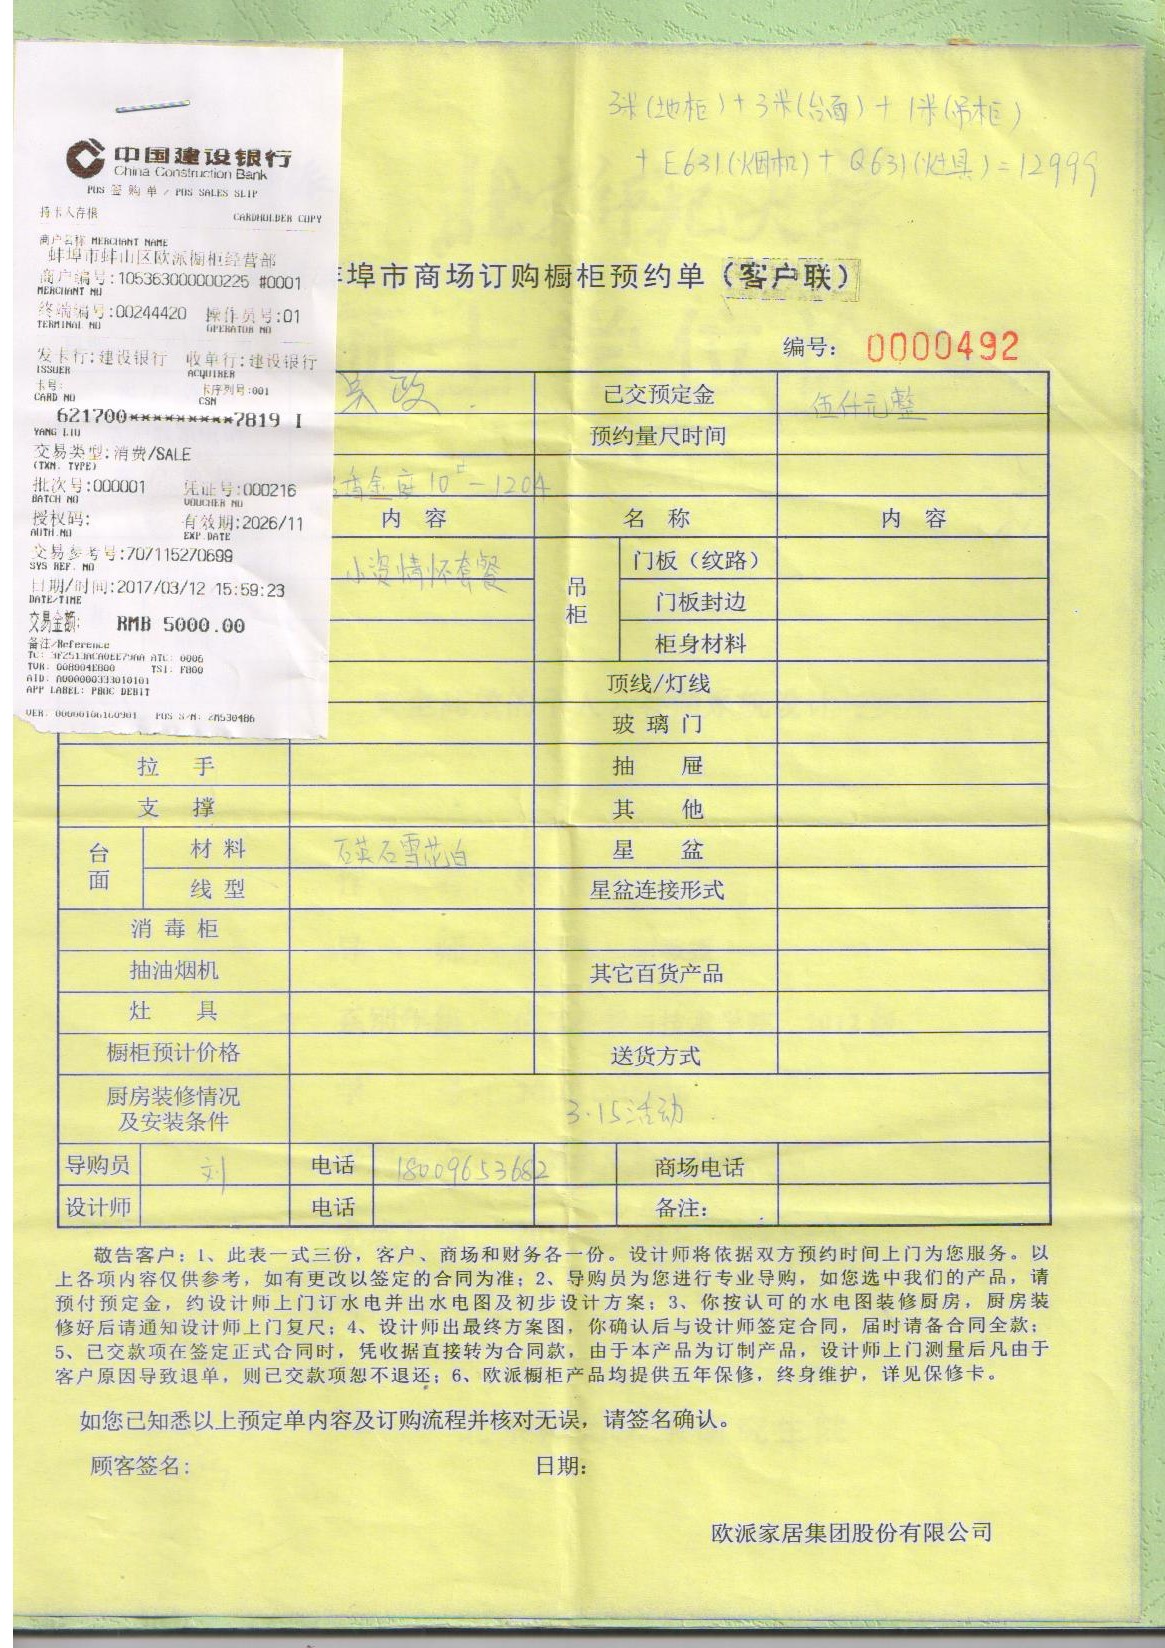 3米(地柜)+3米(台面)+1米(吊柜)
+E631(烟机)+Q631(灶具)=12999
中国建设银行
China Construction Bank
POS 签购单 / POS SALES SLIP
持卡人存根 CARDHOLDER COPY
商户名称 MERCHANT NAME
蚌埠市蚌山区欧派橱柜经营部
商户编号:105363000000225 #0001
MERCHANT NO
终端编号:00244420 操作员号:01
TERMINAL NO OPERATOR NO
发卡行:建设银行 收单行:建设银行
ISSUER ACQUIRER
卡号: 卡序列号:001
CARD NO CSN
621700*********7819 I
YANG LIU
交易类型:消费/SALE
(TXN. TYPE)
批次号:000001 凭证号:000216
BATCH NO VOUCHER NO
授权码: 有效期:2026/11
AUTH.NO EXP.DATE
交易参考号:707115270699
SYS REF. NO
日期/时间:2017/03/12 15:59:23
DATE/TIME
交易金额: RMB 5000.00
备注/Reference
TC: 3F2513ACA0EE79AA ATC: 0006
TVR: 008004E800 TSI: F800
AID: A000000333010101
APP LABEL: PBOC DEBIT
VER: 00000106160901 POS S/N: ZA530486
埠市商场订购橱柜预约单（客户联）
编号： 0000492
吴政 已交预定金 伍仟元整
预约量尺时间
金度10#-1204
内 容 名 称 内 容
小资情怀套餐 吊柜 门板（纹路）
门板封边
柜身材料
顶线/灯线
玻 璃 门
拉 手 抽 屉
支 撑 其 他
台面 材 料 石英石雪花白 星 盆
线 型 星盆连接形式
消 毒 柜
抽油烟机 其它百货产品
灶 具
橱柜预计价格 送货方式
厨房装修情况
及安装条件 3.15活动
导购员 刘 电话 18009653682 商场电话
设计师 电话 备注：
敬告客户：1、此表一式三份，客户、商场和财务各一份。设计师将依据双方预约时间上门为您服务。以
上各项内容仅供参考，如有更改以签定的合同为准；2、导购员为您进行专业导购，如您选中我们的产品，请
预付预定金，约设计师上门订水电并出水电图及初步设计方案；3、你按认可的水电图装修厨房，厨房装
修好后请通知设计师上门复尺；4、设计师出最终方案图，你确认后与设计师签定合同，届时请备合同全款；
5、已交款项在签定正式合同时，凭收据直接转为合同款，由于本产品为订制产品，设计师上门测量后凡由于
客户原因导致退单，则已交款项恕不退还；6、欧派橱柜产品均提供五年保修，终身维护，详见保修卡。
如您已知悉以上预定单内容及订购流程并核对无误，请签名确认。
顾客签名： 日期：
欧派家居集团股份有限公司